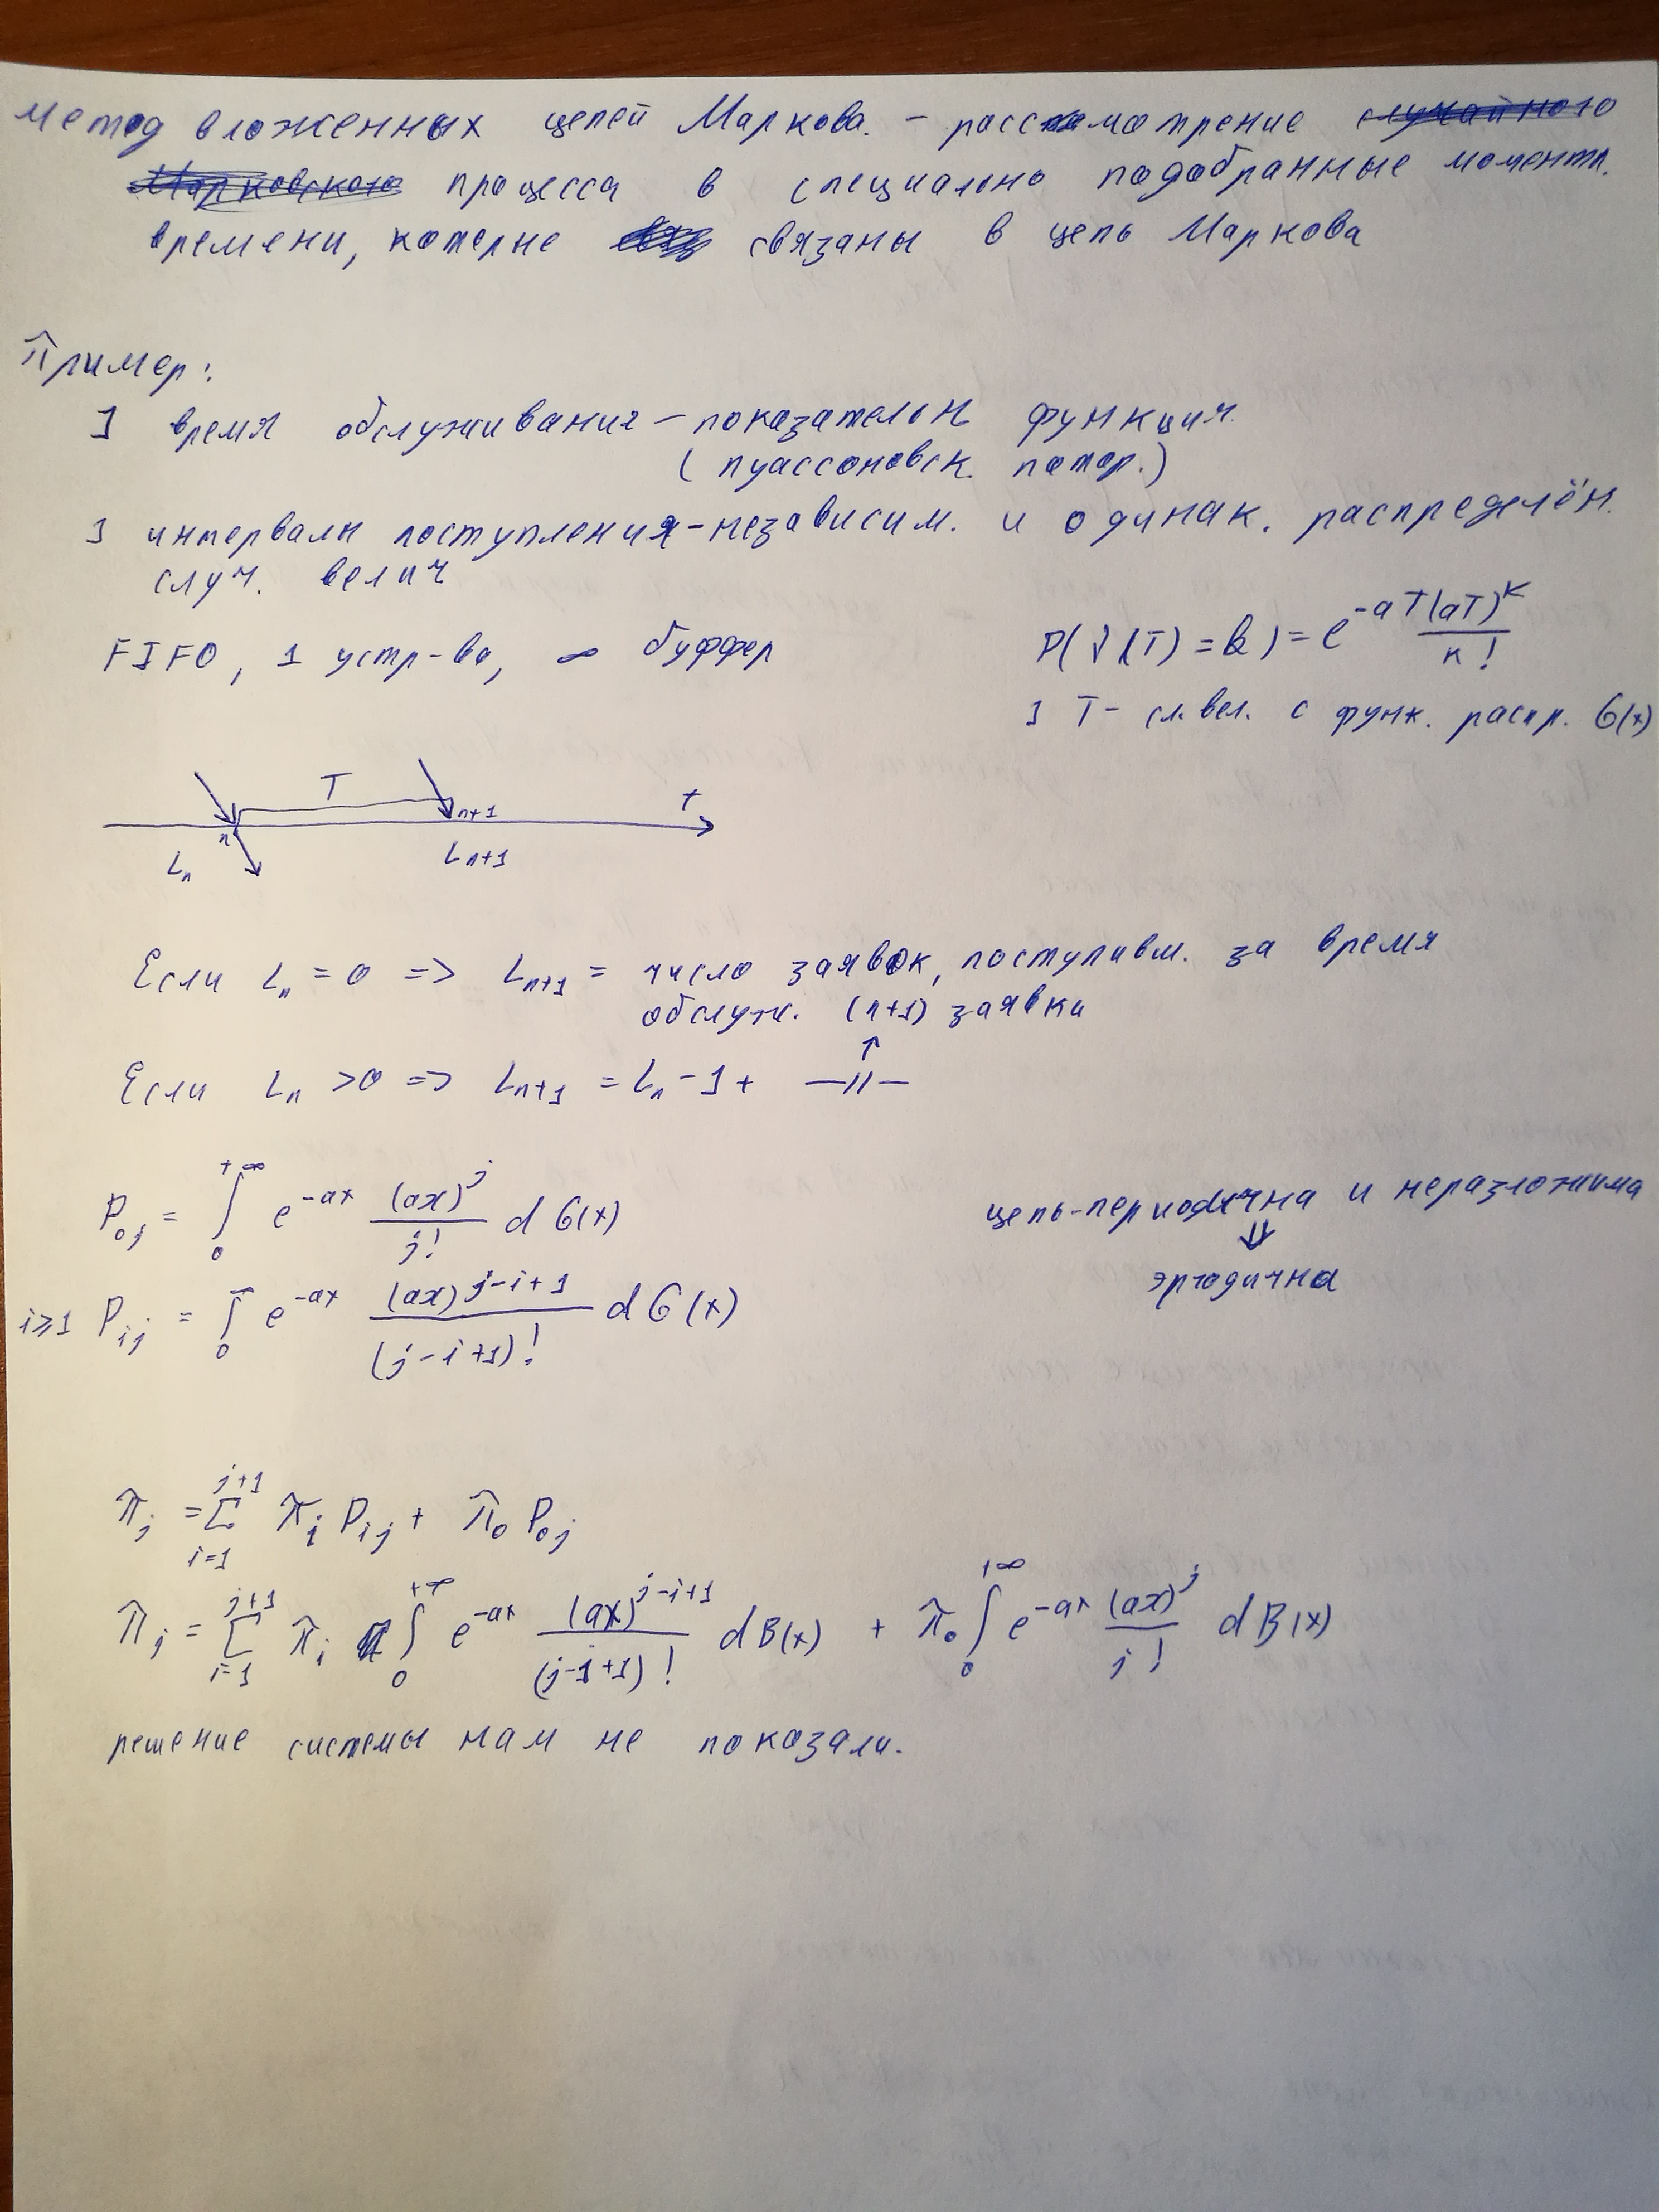 Метод вложенных цепей Маркова. – рассмотрение случайного
Марковского процесса в специально подобранные моменты.
времени, которые связаны в цепь Маркова
Пример:
] время обслуживания – показательн функция.
(пуассоновск. поток.)
] интервалы поступления - независим. и одинак. распределён.
случ. велич
FIFO, 1 устр-во, ∞ буффер
P(ν(T) = k) = e^{-aT} (aT)^k / k!
] T – сл. вел. с функ. распр. G(x)
T
t
n
n+1
L_n
L_{n+1}
Если L_n = 0 => L_{n+1} = число заявок, поступивш. за время
обслуж. (n+1) заявки
↑
Если L_n > 0 => L_{n+1} = L_n - 1 + —//—
P_{0j} = ∫_0^{+∞} e^{-ax} (ax)^j / j! dG(x)
цепь-периодична и неразложима
⇓
эргодична
i≥1 P_{ij} = ∫_0^∞ e^{-ax} (ax)^{j-i+1} / (j-i+1)! dG(x)
π_j = Σ_{i=1}^{j+1} π_i P_{ij} + π_0 P_{0j}
π_j = Σ_{i=1}^{j+1} π_i ∫_0^{+∞} e^{-ax} (ax)^{j-i+1} / (j-1+1)! dB(x) + π_0 ∫_0^{+∞} e^{-ax} (ax)^j / j! dB(x)
решение системы нам не показали.